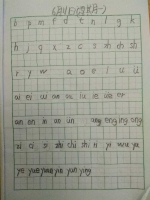 b p m f d t n l g k
h j q x z c s zh ch sh
r y w a o e i u ü
ai ei ui ao ou iu ie üe er
an en in un ün ang eng ing ong
zi ci si zhi chi shi ri yi wu yu
ye yue yuan yin yun ying